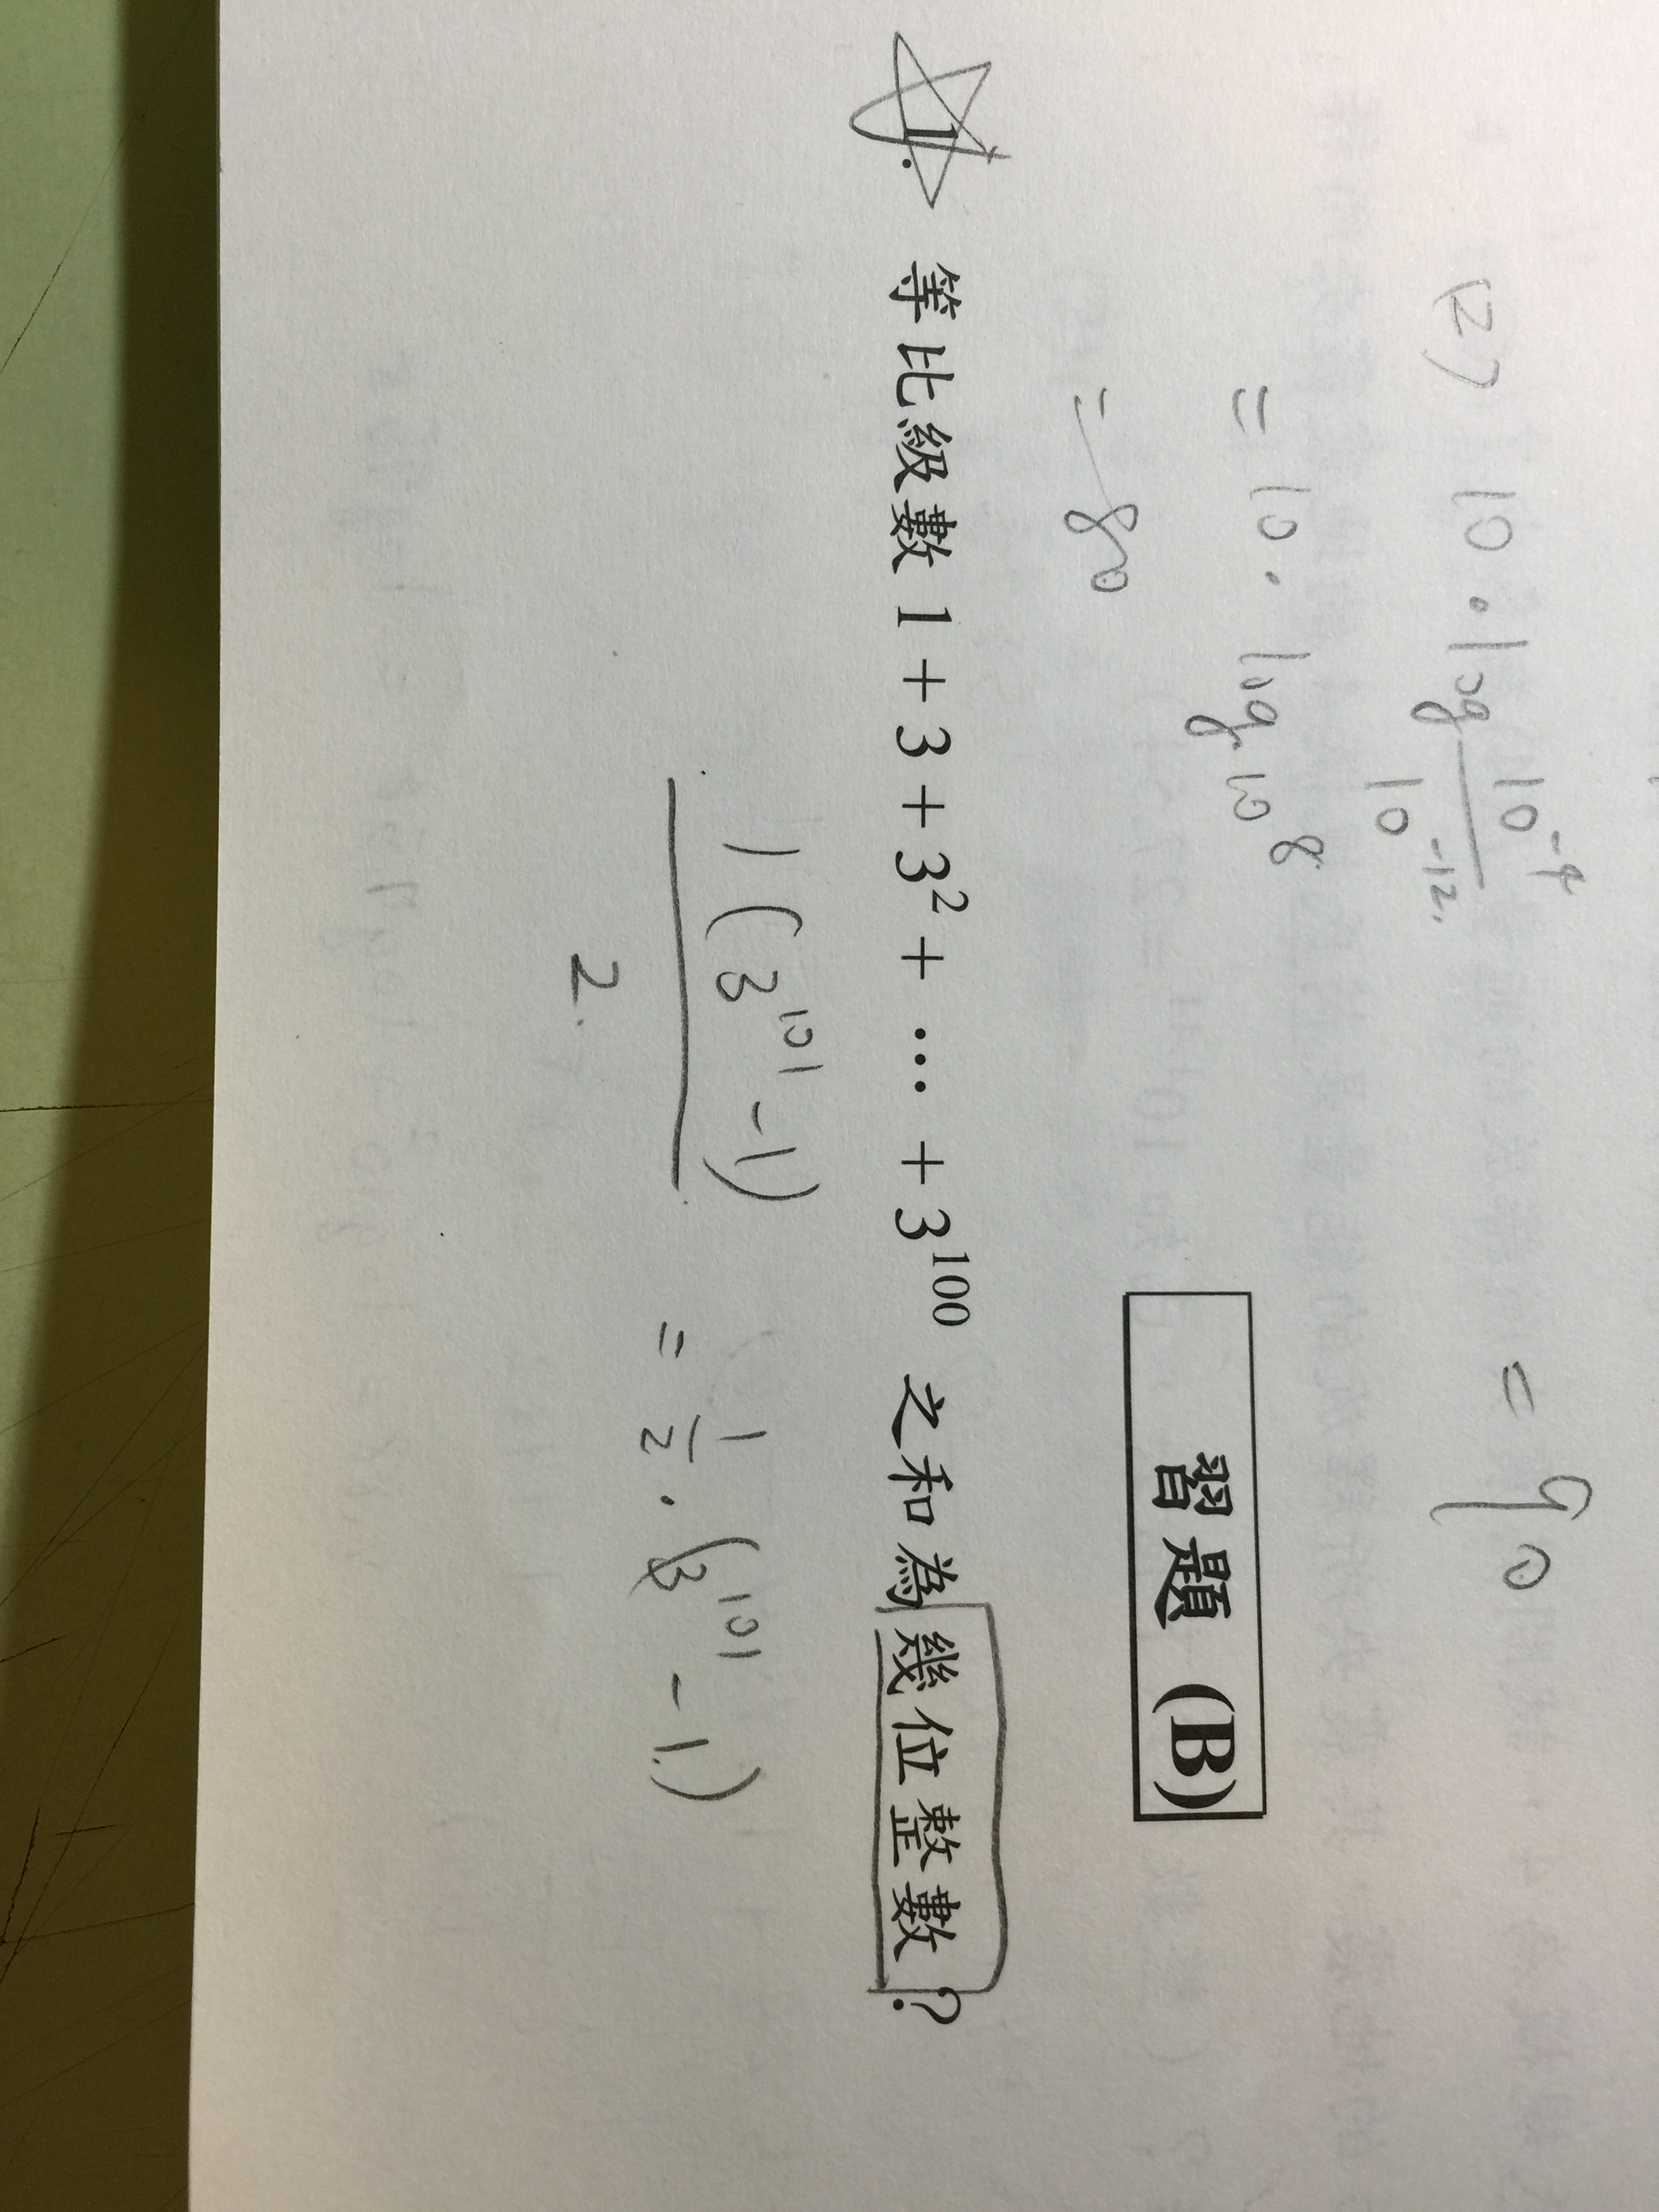 = 90
(2) 10 · log 10^-4 / 10^-12
= 10 · log 10^8
= 80
習題 (B)
1. 等比級數 1 + 3 + 3² + ⋯ + 3¹⁰⁰ 之和為幾位整數?
1(3^101 - 1) / 2 = 1/2 · (3^101 - 1)